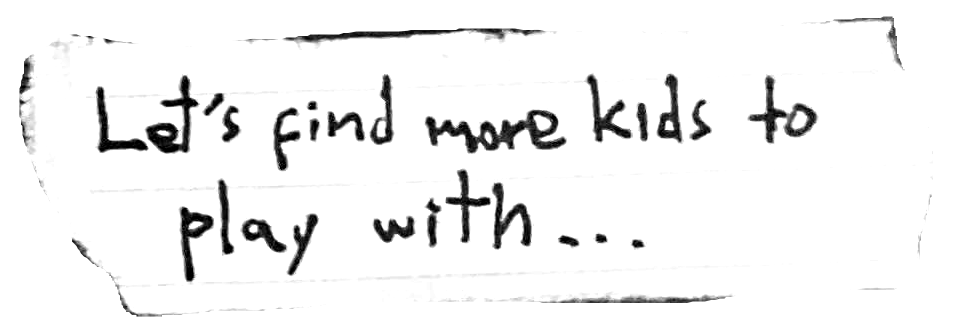 Let's find more kids to
play with...